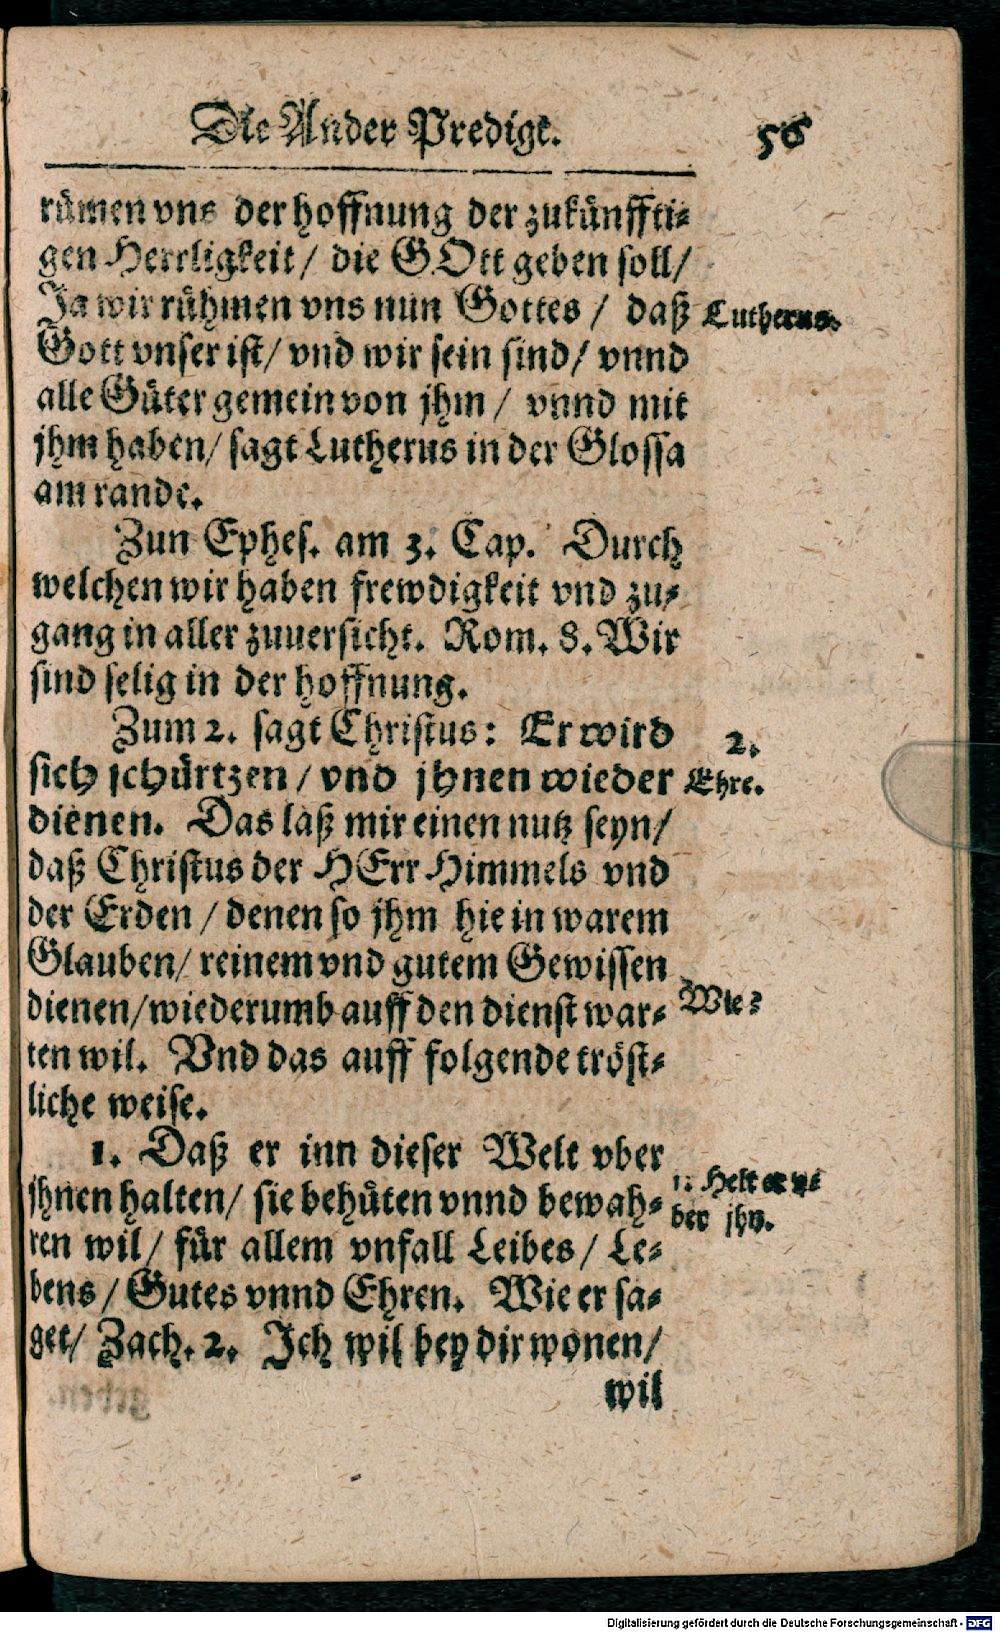 Die Ander Predigt. 56
rümen vns der hoffnung der zukünffti-
gen Herrligkeit / die GOtt geben soll /
Ja wir rühmen vns nun Gottes / daß
Lutherus.
Gott vnser ist / vnd wir sein sind / vnnd
alle Güter gemein von jhm / vnnd mit
jhm haben / sagt Lutherus in der Glossa
am rande.
Zun Ephes. am 3. Cap. Durch
welchen wir haben frewdigkeit vnd zu-
gang in aller zuuersicht. Rom. 8. Wir
sind selig in der hoffnung.
Zum 2. sagt Christus: Er wird
2.
sich schürtzen / vnd jhnen wieder
Ehre.
dienen. Das laß mir einen nutz seyn /
daß Christus der HErr Himmels vnd
der Erden / denen so jhm hie in warem
Glauben / reinem vnd gutem Gewissen
dienen / wiederumb auff den dienst war-
Wie?
ten wil. Vnd das auff folgende tröst-
liche weise.
1. Daß er inn dieser Welt vber
1. Helt er v-
jhnen halten / sie behüten vnnd bewah-
ber jhn.
ren wil / für allem vnfall Leibes / Le-
bens / Gutes vnnd Ehren. Wie er sa-
get / Zach. 2. Ich wil bey dir wonen /
wil
Digitalisierung gefördert durch die Deutsche Forschungsgemeinschaft - DFG